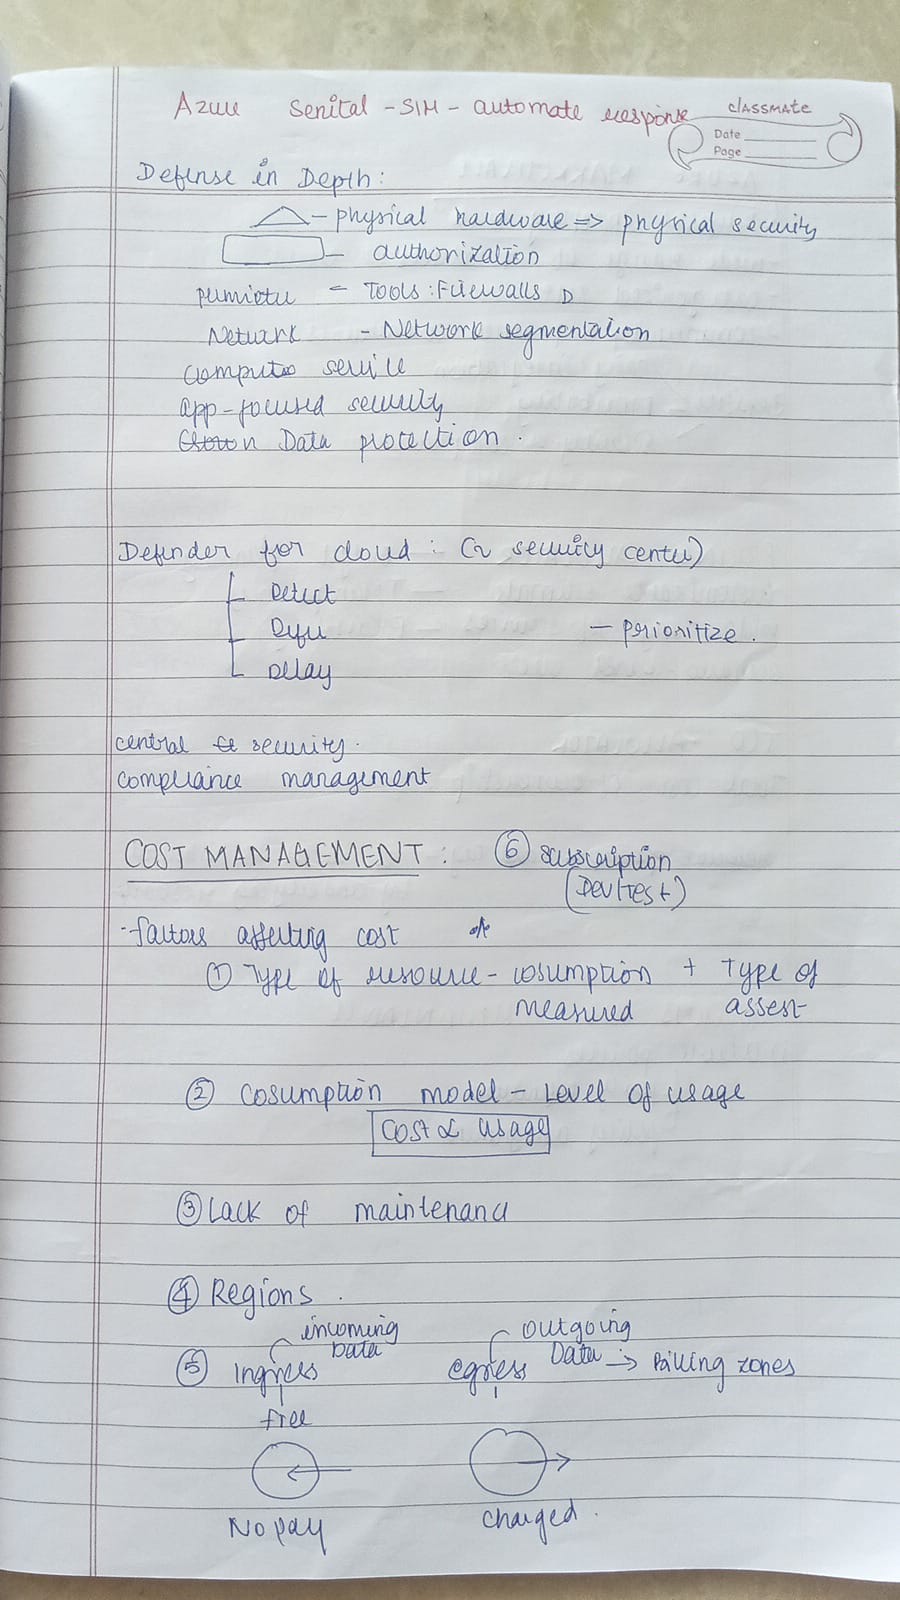 Azure Senital - SIM - automate response
classmate
Date
Page
Defense in Depth:
- physical hardware => physical security
- authorization
perimeter - Tools: Firewalls D
Network - Network segmentation
compute service
app-focused security
Data protection.
Defender for cloud: (~ security center)
Detect
Defer - prioritize.
Delay
central security.
compliance management
COST MANAGEMENT:
⑥ subscription
(Dev/Test)
- factors affecting cost
① Type of resource - cosumption + Type of
measured assest
② Cosumption model - Level of usage
Cost ∝ usage
③ Lack of maintenance
④ Regions.
incoming Outgoing
Data
⑤ Ingress egress Data → Billing zones
free
No pay Charged.